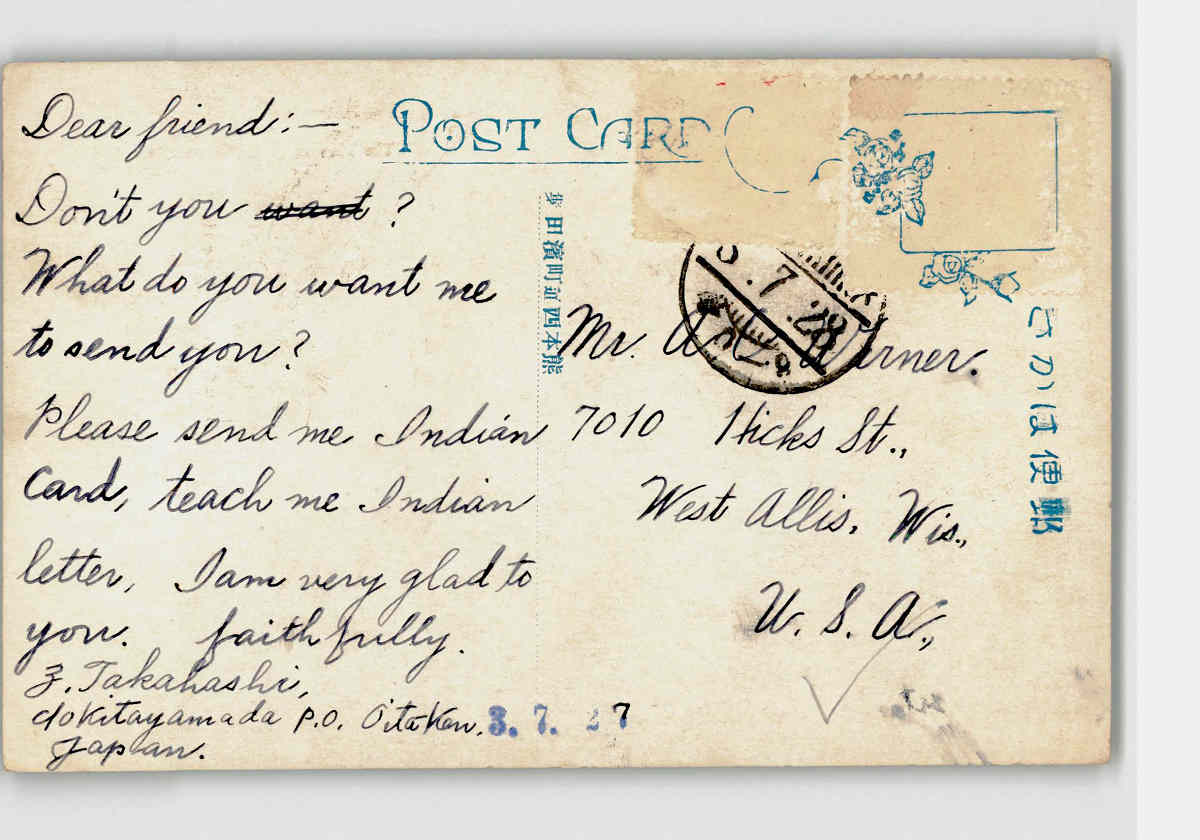 POST CARD
Dear friend:—
Don't you want ?
What do you want me
to send you?
Please send me Indian
Card, teach me Indian
letter, I am very glad to
you. faithfully.
Z. Takahashi,
c/o Kitayamada P.O. Oita Ken.
Japan.
3. 7. 27
熊本四 町濱田
7 .28
Mr. A
7010 Hicks St.,
West Allis, Wis.,
U. S. A.,
郵便はかき